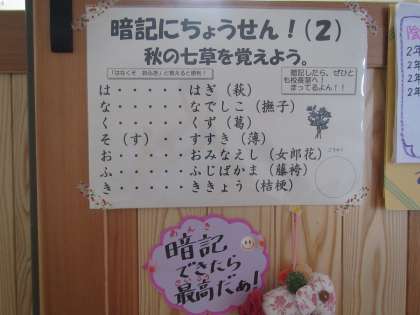 暗記にちょうせん！（２）
秋の七草を覚えよう。
「はなくそ　おふき」と覚えると便利！
暗記したら、ぜひと
も校長室へ！
まってるよん！！
は・・・・・・はぎ（萩）
な・・・・・・なでしこ（撫子）
く・・・・・・くず（葛）
そ（す）・・・・すすき（薄）
お・・・・・・おみなえし（女郎花）
ふ・・・・・・ふじばかま（藤袴）
き・・・・・・ききょう（桔梗）
暗記
あんき
できたら
最高だぁ！